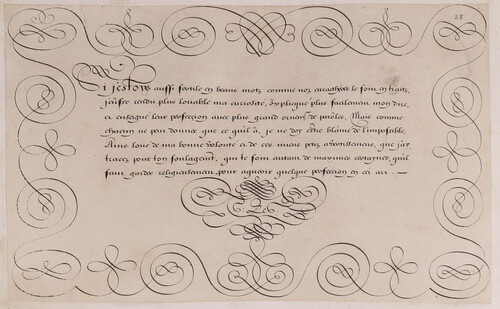 28
Si j'estois aussi fertile en beaux motz comme noz caracteres le sont en traitz,
j'eusse rendu plus louable ma curiosité, expliqué plus facilement mon dire,
et enseigné leur perfection avec plus grand ornem. de paroles, Mais comme
chacun ne peu donner que ce qu'il à, je ne doy estre blasmé de l'impossible.
Ains loué de ma bonne volonté et de ces miens petis advertissemens, que j'ay
tracez pour ton soulagem!, qui te sont autant de maximes certaines, qu'il
faut garder religieusement, pour aquerir quelque perfection en cet art. —